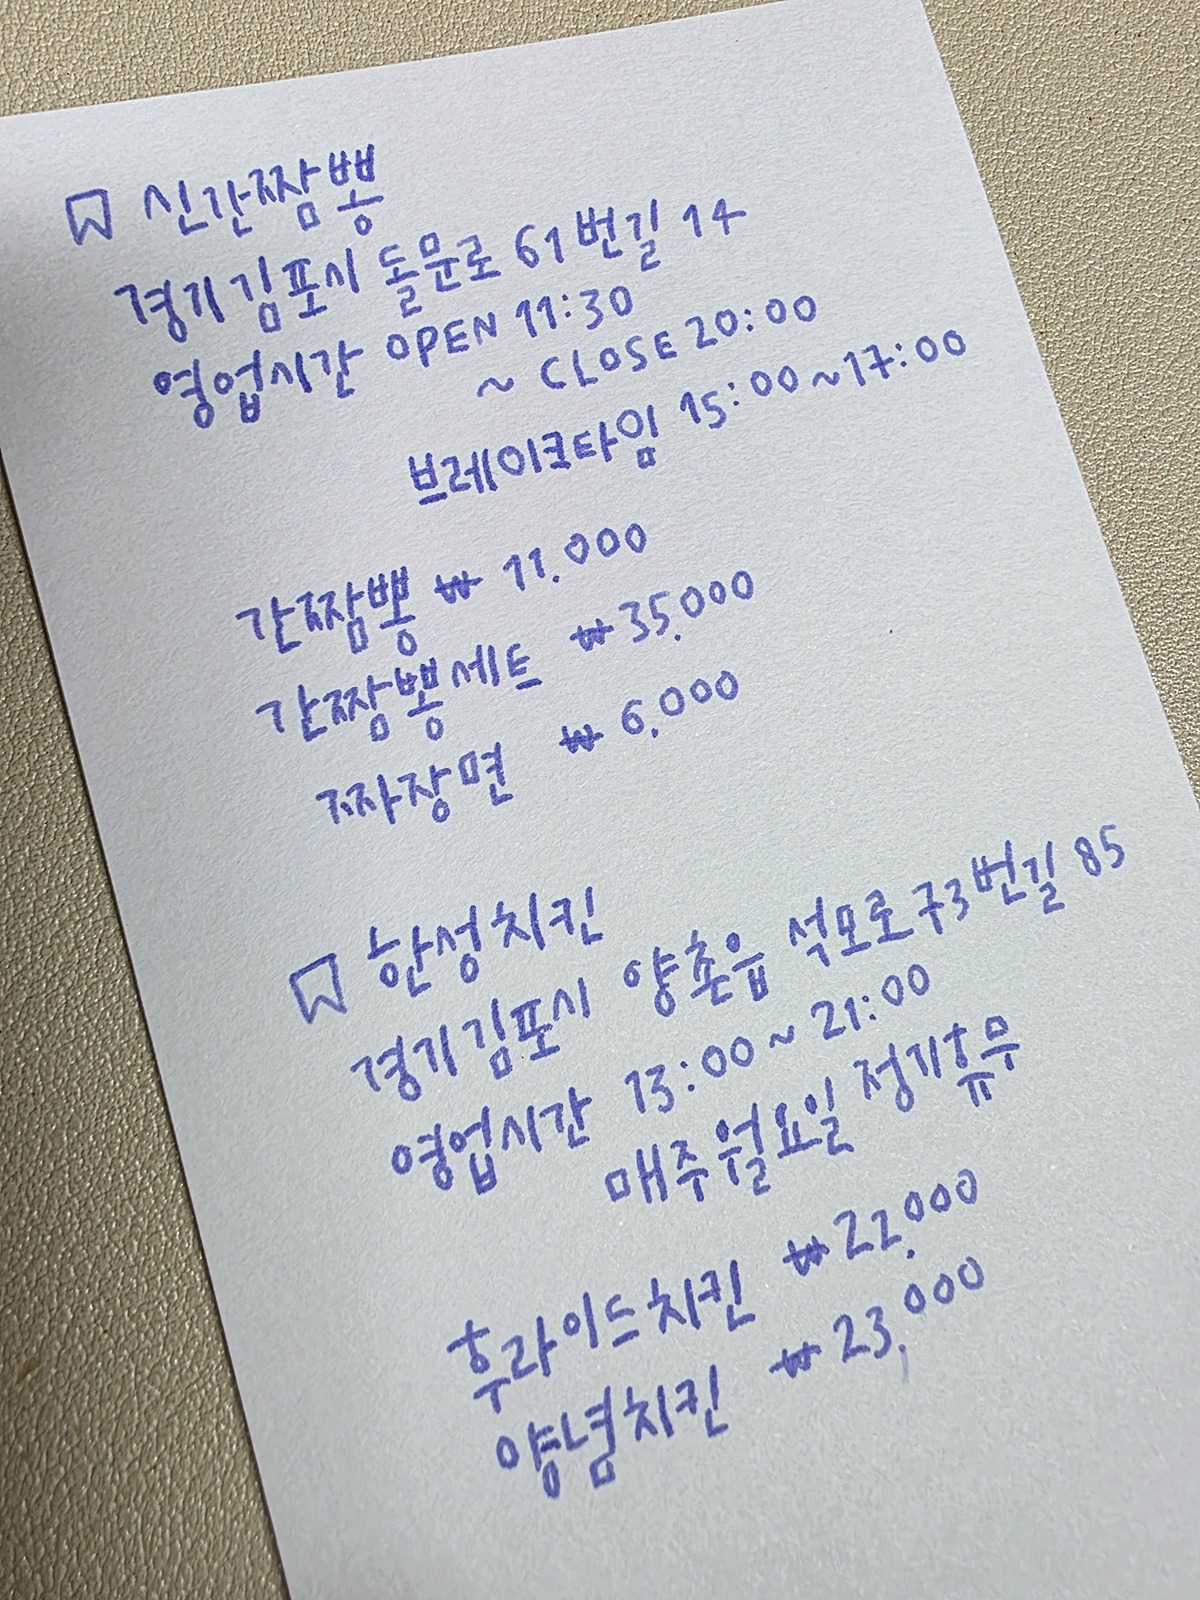 신간짬뽕
경기 김포시 돌문로 61번길 14
영업시간 OPEN 11:30
~ CLOSE 20:00
브레이크타임 15:00~17:00
간짬뽕 ₩ 11.000
간짬뽕세트 ₩ 35.000
짜장면 ₩ 6.000
한성치킨
경기 김포시 양촌읍 석모로 73번길 85
영업시간 13:00~21:00
매주 월요일 정기휴무
후라이드치킨 ₩22.000
양념치킨 ₩23.000